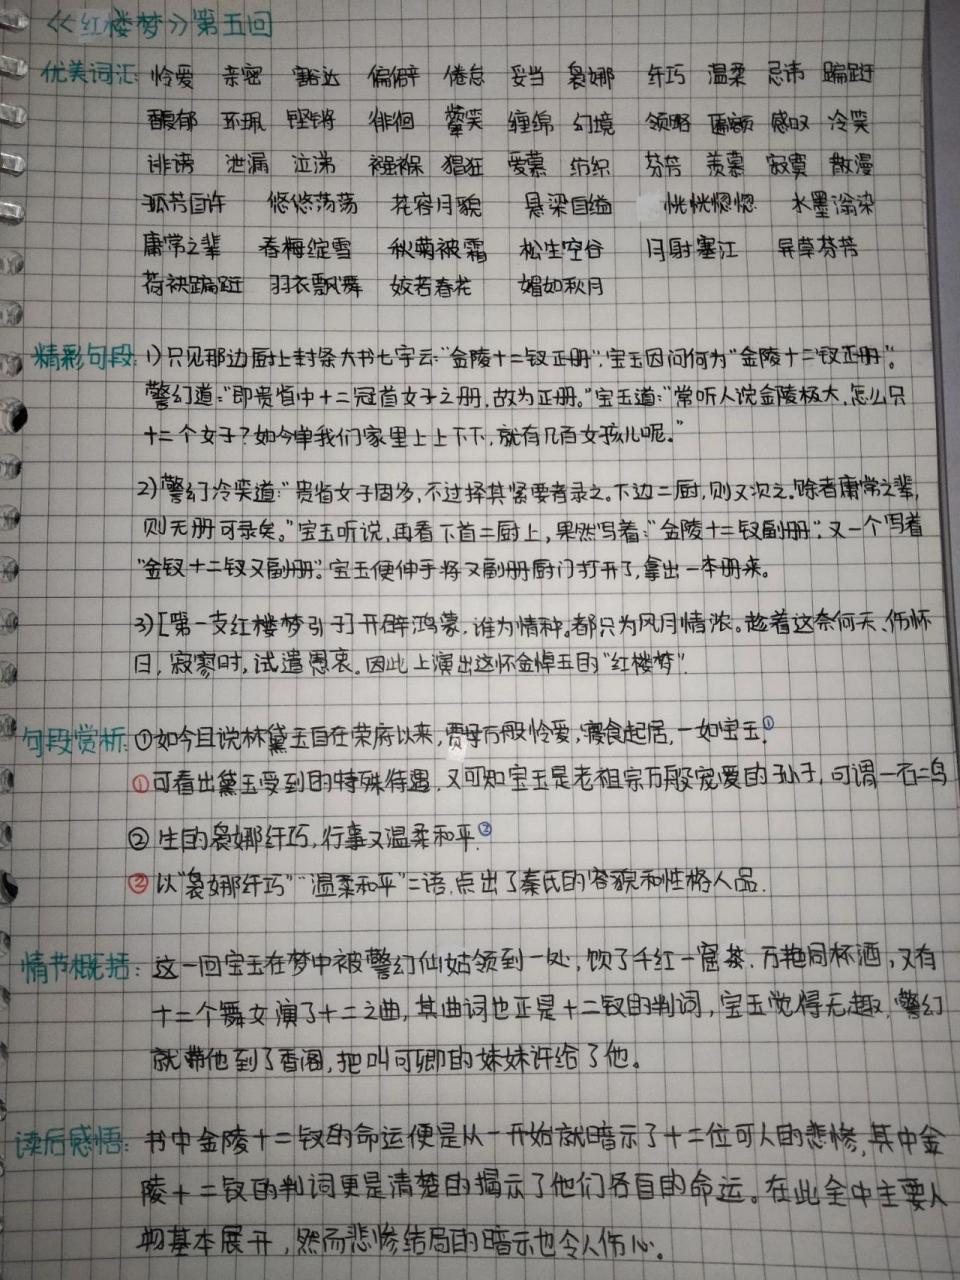 《红楼梦》第五回
优美词汇: 怜爱 亲密 豁达 偏僻 倦怠 妥当 袅娜 纤巧 温柔 忌讳 蹁跹
馥郁 环珮 铿锵 徘徊 颦笑 缠绵 幻境 领略 匾额 感叹 冷笑
诽谤 泄漏 泣涕 襁褓 猖狂 爱慕 纺织 芬芳 羡慕 寂寞 散漫
孤芳自许 悠悠荡荡 花容月貌 悬梁自缢 恍恍惚惚 水墨滃染
庸常之辈 春梅绽雪 秋菊被霜 松生空谷 月射寒江 异草芬芳
荷袂蹁跹 羽衣飘舞 姣若春花 媚如秋月
精彩句段: 1)只见那边厨上封条大书七字云:“金陵十二钗正册”.宝玉因问何为“金陵十二钗正册”。
警幻道:“即贵省中十二冠首女子之册,故为正册。”宝玉道:“常听人说金陵极大,怎么只
十二个女子?如今单我们家里上上下下,就有几百女孩儿呢。”
2)警幻冷笑道:“贵省女子固多,不过择其紧要者录之。下边二厨,则又次之。馀者庸常之辈,
则无册可录矣。”宝玉听说,再看下首二厨上,果然写着:“金陵十二钗副册”.又一个写着
“金钗十二钗又副册”.宝玉便伸手将又副册厨门打开了,拿出一本册来。
3)[第一支红楼梦引子]开辟鸿蒙,谁为情种。都只为风月情浓。趁着这奈何天、伤怀
日,寂寥时,试遣愚衷。因此上演出这怀金悼玉的“红楼梦”.
句段赏析: ①如今且说林黛玉自在荣府以来,贾母万般怜爱,寝食起居,一如宝玉.①
①可看出黛玉受到的特殊待遇,又可知宝玉是老祖宗万般宠爱的孙子,可谓一石二鸟
② 生的袅娜纤巧,行事又温柔和平.②
② 以“袅娜纤巧”“温柔和平”二语,点出了秦氏的容貌和性格人品.
情节概括: 这一回宝玉在梦中被警幻仙姑领到一处,饮了千红一窟茶.万艳同杯酒,又有
十二个舞女演了十二之曲,其曲词也正是十二钗的判词,宝玉觉得无趣,警幻
就带他到了香阁,把叫可卿的妹妹许给了他。
读后感悟: 书中金陵十二钗的命运便是从一开始就暗示了十二位可人的悲惨,其中金
陵十二钗的判词更是清楚的揭示了他们各自的命运。在此全中主要人
物基本展开,然而悲惨结局的暗示也令人伤心。